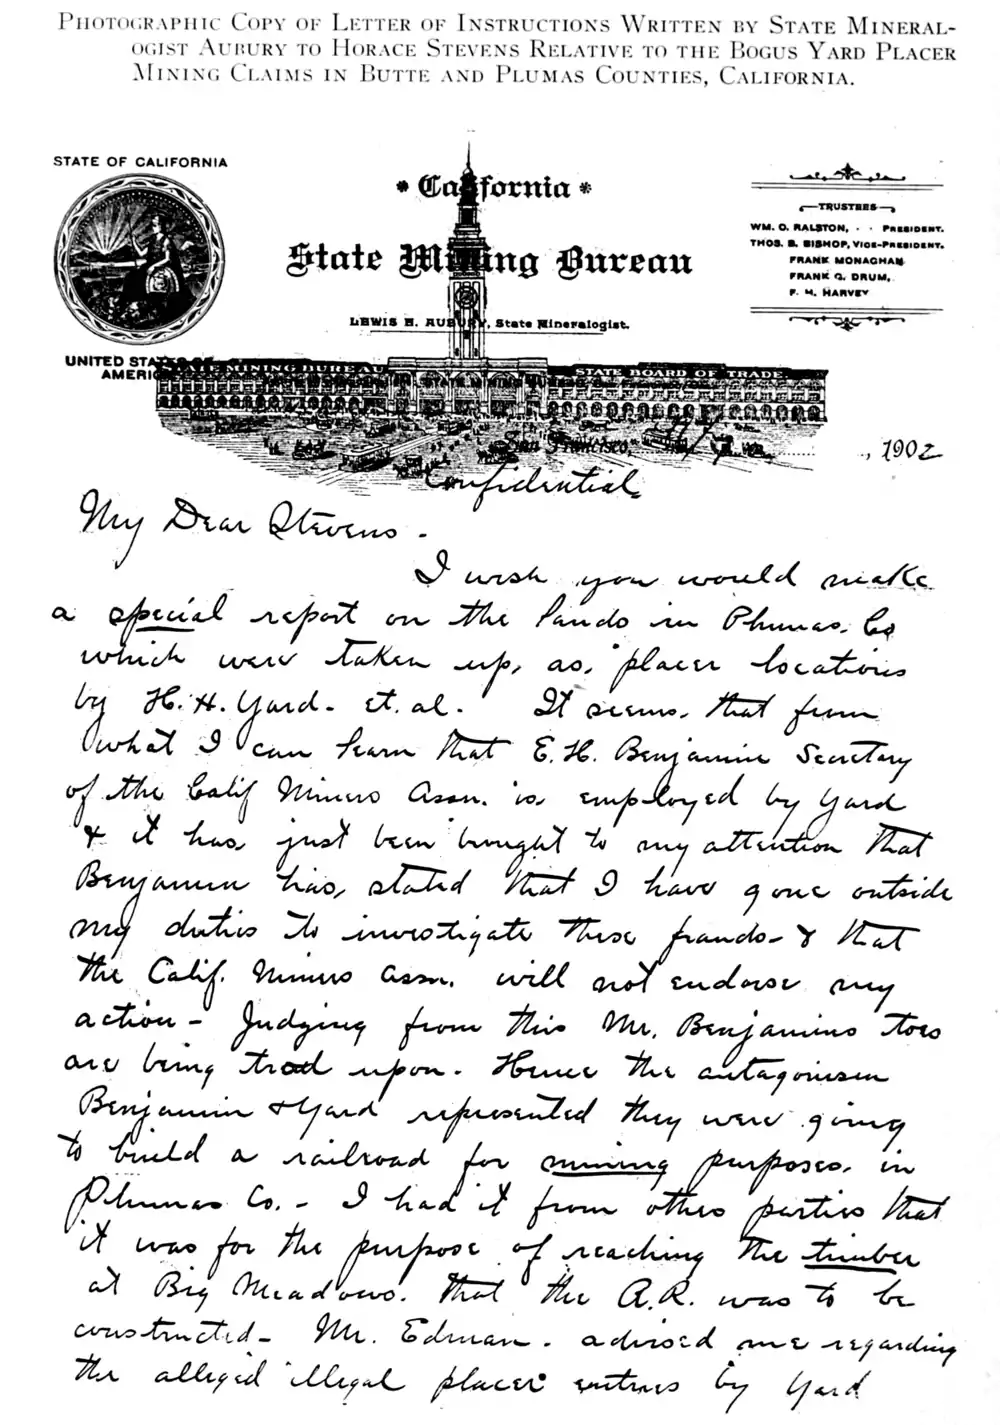 PHOTOGRAPHIC COPY OF LETTER OF INSTRUCTIONS WRITTEN BY STATE MINERAL-
OGIST AUBURY TO HORACE STEVENS RELATIVE TO THE BOGUS YARD PLACER
MINING CLAIMS IN BUTTE AND PLUMAS COUNTIES, CALIFORNIA.
STATE OF CALIFORNIA
UNITED STATES OF
AMERICA
* California *
State Mining Bureau
LEWIS E. AUBURY, State Mineralogist.
TRUSTEES
WM. O. RALSTON, · · PRESIDENT.
THOS. B. BISHOP, VICE-PRESIDENT.
FRANK MONAGHAN
FRANK G. DRUM,
F. H. HARVEY
STATE MINING BUREAU
STATE MINING BUREAU
STATE BOARD OF TRADE
San Francisco,
, 1902
Confidential
My Dear Stevens.
I wish you would make
a special report on the lands in Plumas. Co
which were taken up, as, placer locations
by H. H. Yard. et. al. It seems. that from
what I can learn that E. H. Benjamin Secretary
of the Calif Miners Assn. is employed by Yard
& it has just been brought to my attention that
Benjamin has, stated that I have gone outside
my duties to investigate these frauds- & that
the Calif. Miners Assn. will not endorse my
action - Judging from this Mr. Benjamins toes
are being trod upon. Hence the antagonism
Benjamin & Yard represented they were going
to build a railroad for mining purposes. in
Plumas Co. - I had it from other parties that
it was for the purpose of reaching the timber
at Big Meadows. that the R.R. was to be
constructed - Mr. Edman. advised me regarding
the alleged illegal placer entries by Yard